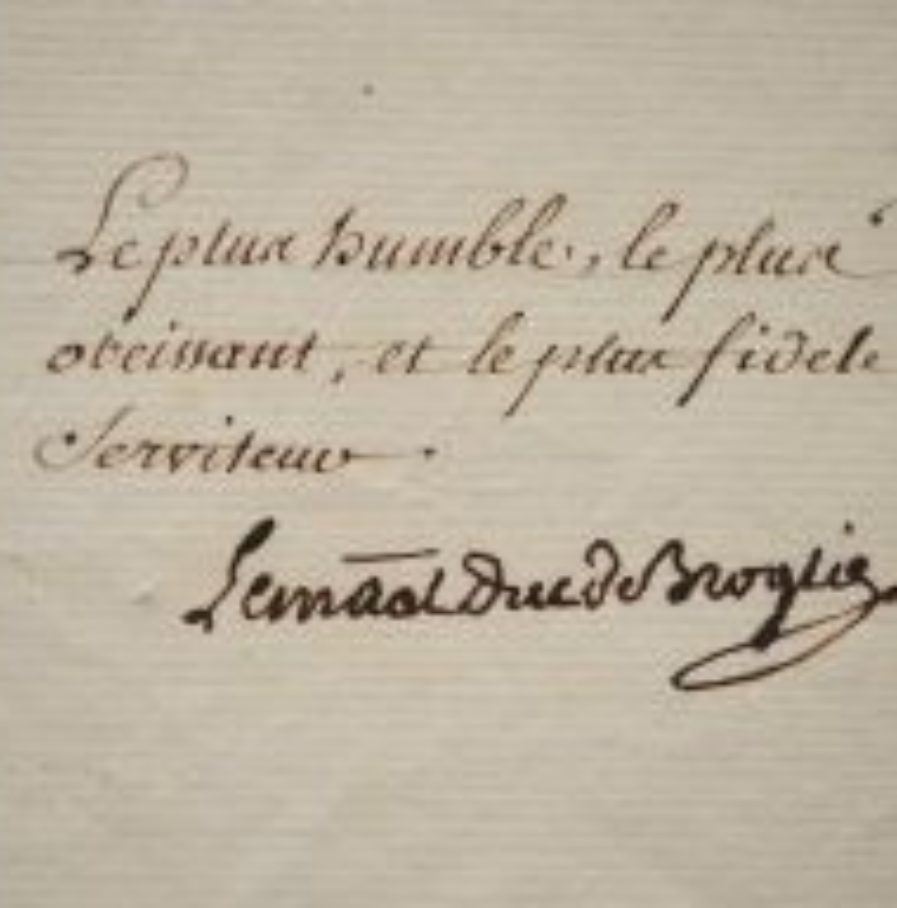 Le plus humble, le plus
obeissant, et le plus fidele
Serviteur.
Le mãal Duc de Broglie